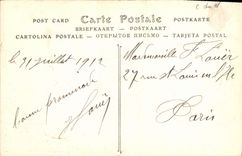 POST CARD Carte Postale POSTKARTE
BRIEFKAART — POSTKAART
CARTOLINA POSTALE — ОТКРЫТОЕ ПИСЬМО — TARJETA POSTAL
le 31 juillet 1912
bonne promenade
Mademoiselle
27 rue St Louis en l'Ile
Paris